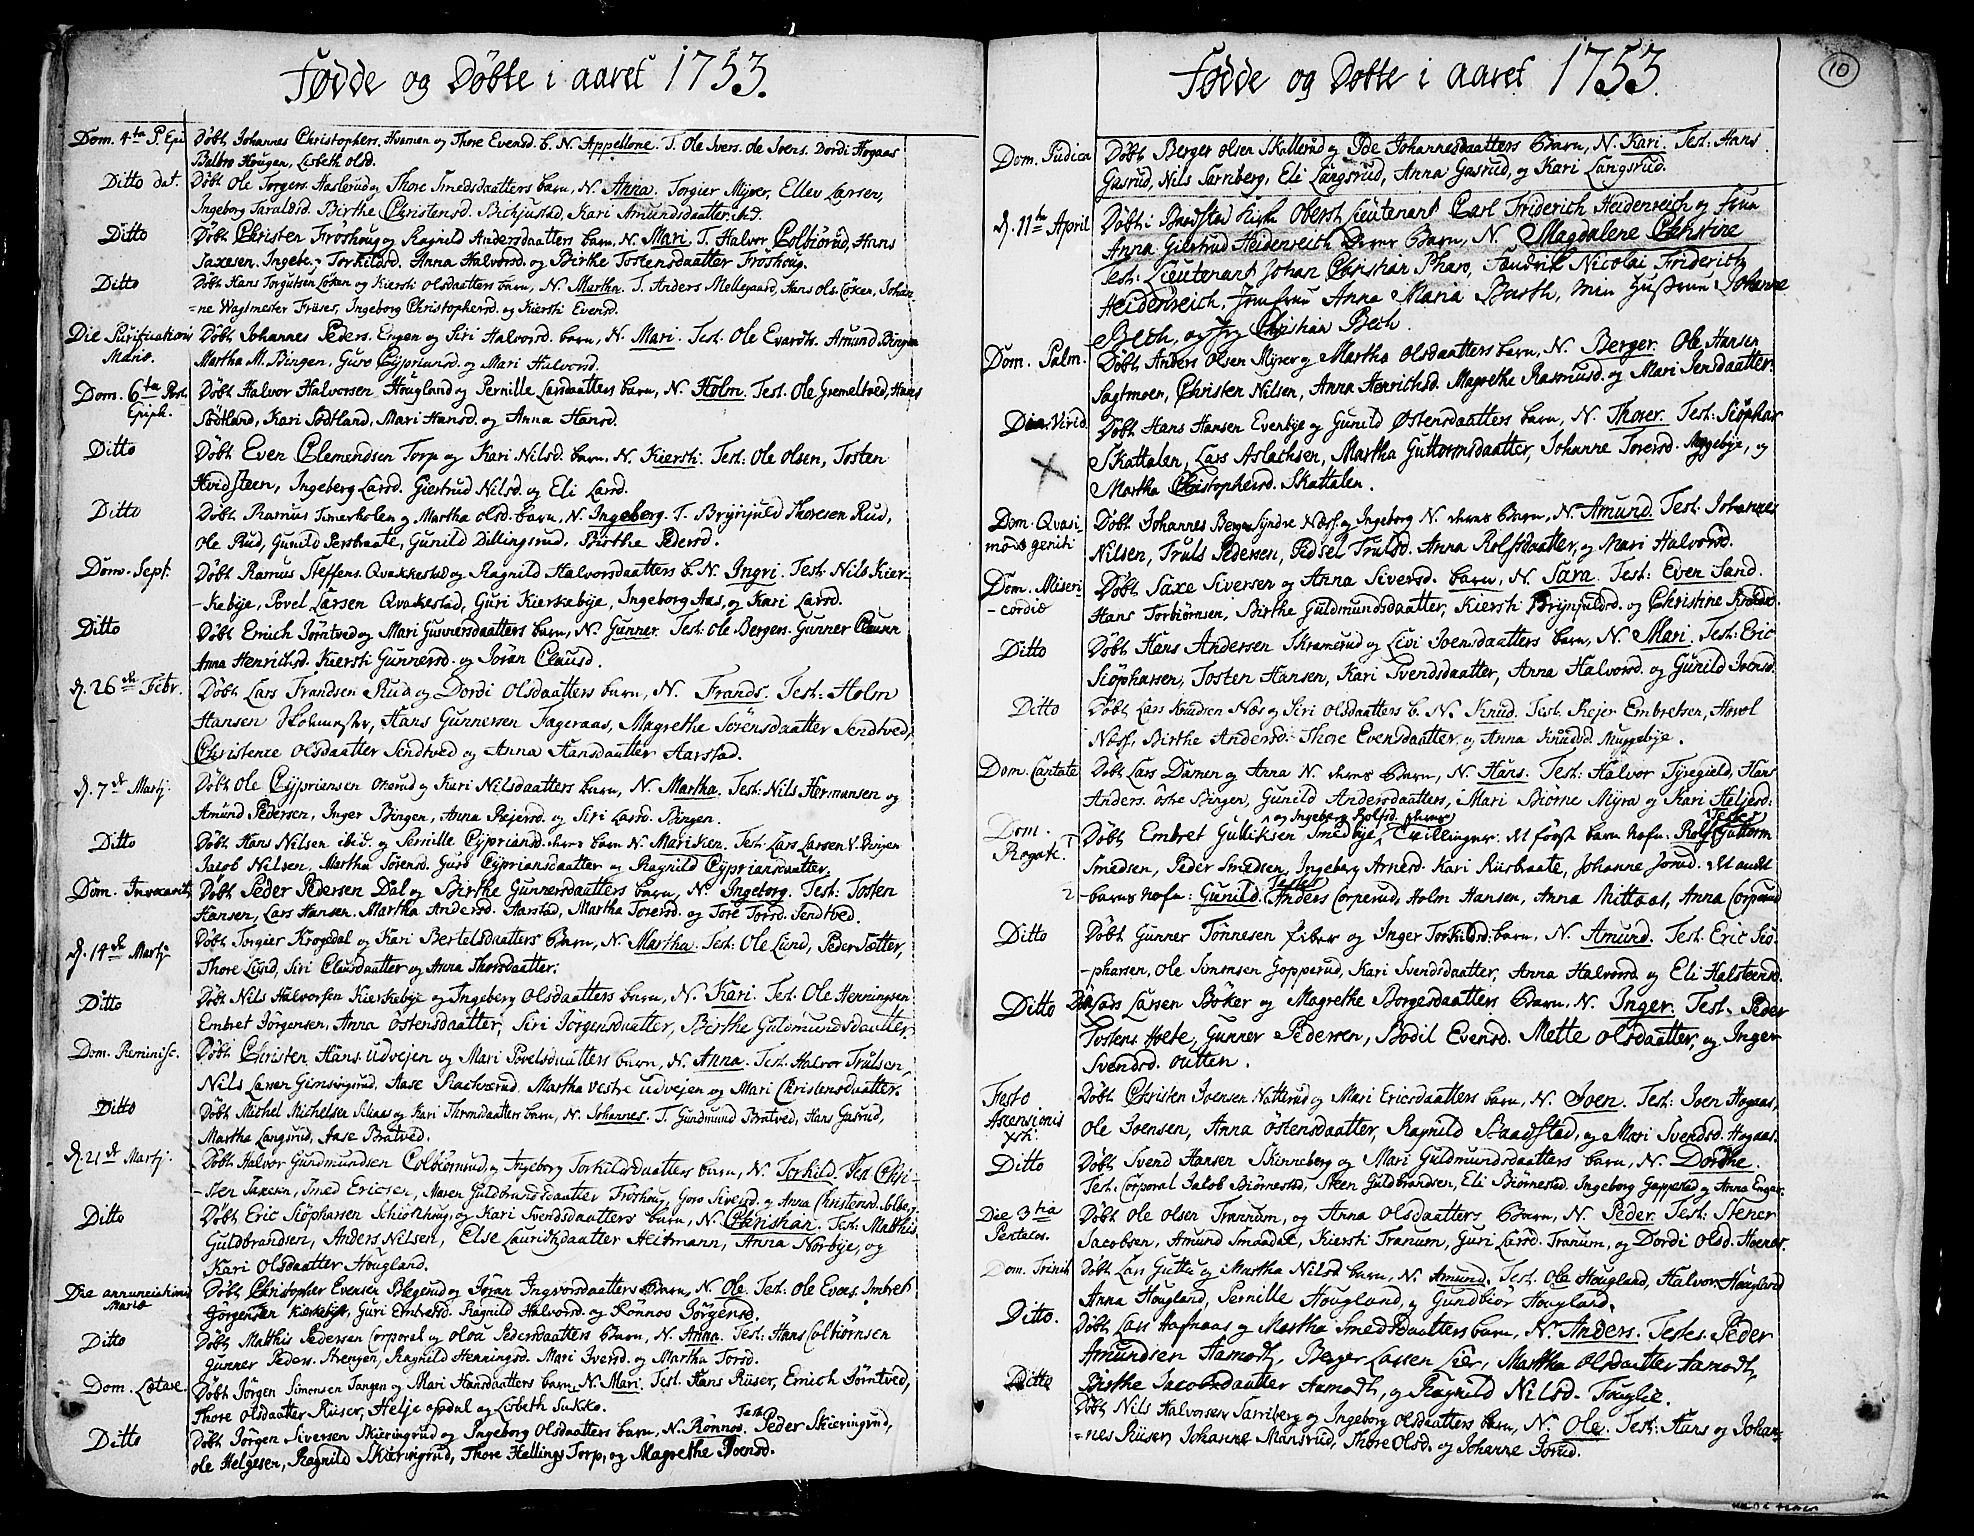 Fødde og Døbte i aaret 1753.
Dom. 4ta P. Epi. Døbt Johannes Christophers. Hvamen og Thore Evensd. b. N. Appellone. T. Ole Ivers. Ole Ivens. Dordi Hogaas
Balbro Hougen, Lisbeth Olsd.
Ditto dat. Døbt Ole Torgers. Haslerud og Thore Smedsdaatters barn, N. Anna. Torgier Myrer, Ellev Larsen,
Ingeborg Taraldsd. Birthe Christensd. Bichjustad, Kari Amundsdaatter
Ditto Døbt Christen Frøshoug og Ragnild Andersdaatters barn, N. Mari. T. Halvor Colbiørud, Hans
Saxesen. Ingeb. Torkildsd. Anna Halvorsd. og Birthe Tostensdaatter Froshoug.
Ditto Døbt Hans Torgutsen Løken og Kiersti Olsdaatters barn, N. Martha. T. Anders Mellegaard, Hans Ols. Løken, Johan-
=ne Wagtmester Friises, Ingeborg Christophersd. og Kiersti Evensd.
Die Purification: Mariæ. Døbt Johannes Peders. Engen og Siri Halvorsd. barn, N. Mari. Test. Ole Evardts. Amund Bingen
Martha M. Bingen, Guro Cypriansd. og Mari Halvorsd.
Dom. 6ta Post. Epiph. Døbt Halvor Halvorsen Hougland og Pernille Larsdaatters barn, N. Holm. Test. Ole Gremeltved, Hans
Sødtland, Kari Sødtland, Mari Hansd. og Anna Hansd.
Ditto Døbt Even Clemendsen Torp og Kari Nilsd. barn, N. Kiersti. Test. Ole Olsen, Tosten
Hvidsteen, Ingeborg Larsd. Giertrud Nilsd. og Eli Larsd.
Ditto Døbt Rasmus Timerholen og Martha Olsd. barn, N. Ingeborg. T. Brynjuld Thoresen Rud,
Ole Rud, Gunild Perstraate, Gunild Dillingsrud. Birthe Pedersd.
Dom. Sept. Døbt Rasmus Steffens. Qvakkestad og Ragnild Halvorsdaatters b. N. Ingri. Test. Nils Kier-
-kebije, Povel Larsen Qvakestad, Guri Kierkebije, Ingeborg Aas, og Kari Larsd.
Ditto Døbt Errich Jørntved og Mari Gunnersdaatters barn, N. Gunner. Test. Ole Bergers. Gunner Clausen
Anna Henrichsd. Kiersti Gunnersd. og Jøran Clausd.
d. 26de Febr. Døbt Lars Frandsen Rud og Dordi Olsdaatters barn, N. Frands. Test: Holm
Hansen Holmester, Hans Gunnersen Fageraas, Magrethe Sørensdaatter Sendtved,
Christence Olsdaatter Sendtved og Anna Hansdaatter Aarstad.
d. 7de Martj. Døbt Ole Cypriansen Onsrud og Kari Nilsdaatters barn, N. Martha. Test: Nils Hermansen og
Amund Pedersen, Inger Bingen, Anna Rejersd. og Siri Larsd. Bingen.
Ditto Døbt Hans Nilsen ibid. og Pernille Cypriansd. deres barn N. Mariken. Test: Lars Larsen V. Bingen
Jacob Nilsen, Martha Sørensd. Guro Cypriansdaatter og Ragnild Cypriansdaatter.
Dom. Invocavit, Døbt Peder Pedersen Dal og Birthe Gunnersdaatters barn, N. Ingeborg. Test: Tosten
Hansen, Lars Hansen. Martha Andersd. Aarstad, Martha Torersd. og Tore Torsd. Sendtved.
d. 14de Martj. Døbt Torgier Krogedal og Kari Bertelsdaatters Barn, N. Martha. Test: Ole Lund, Peder Sætter,
Thore Lund, Siri Clausdaatter og Anna Thorsdaatter.
Ditto Døbt Nils Halvorsen Kierkebije og Ingeborg Olsdaatters barn, N. Kari. Test. Ole Henningsen
Embret Jørgensen, Anna Østensdaatter, Siri Jørgensdaatter, Berthe Guldmundsdaatter.
Dom. Reminisc. Døbt Christen Hans. Udvejen og Mari Povelsdaatters barn, N. Anna. Test. Halvor Trulsen,
Nils Larsen Gimsingrud, Aase Rachværud. Martha Vestre Udvejen og Mari Christensdaatter.
Ditto Døbt Michel Michelsen Silaas og Kari Thronsdaatters barn, N. Johannes. T. Gundmund Bratved, Hans Gasrud,
Martha Langsrud, Aase Bratved.
d. 21de Martj. Døbt Halvor Gundmundsen Colbiørnsrud og Ingeborg Torkildsdaatters barn, N. Torkild. Test. Chri-
-sten Saxesen, Smed Ericsen, Maren Guldbrandsdaatter Froshoug, Goro Siversd. og Anna Christensd. Solberg.
Ditto Døbt Eric Siøpharsen Schiolhoug, og Kari Svendsdaatters barn, N. Christian. Test: Matthis
Guldbrandsen, Anders Nilsen, Else Lauritzdaatter Heitmann, Anna Norbije, og
Kari Olsdaatter Hougland.
Die annunciationis Mariæ Døbt Christopher Evensen Blegerud og Jøran Ingvorsdaatters Barn, N. Ole. Test: Ole Evens. Imbret
Jørgensen Kierkebije, Guri Embretsd. Ragnild Halvorsd. og Rønnov Jørgensd.
Ditto Døbt Matthis Pedersen Corporal og Oloa Pedersdaatters Barn, N. Anna. Test: Hans Colbiørnsen
Gunner Peders. Strengen, Ragnild Henningsd. Mari Iversd. og Martha Torsd.
Dom. Lætare. Døbt Jørgen Simonsen Tangen og Mari Hansdaatters barn, N. Mari. Test. Hans Riiser, Errich Jørntved,
Thore Olsdaatter Riiser, Helje Opdal og Lisbeth Sukke.
Ditto Døbt Jørgen Siversen Skieringrud og Ingeborg Olsdaatters barn, N. Rønnov. Test. Peder Skieringrud,
Ole Helgesen, Ragnild Skieringrud, Thore Hellings Torp, og Magrethe Joensd.
10
Fødde og Døbte i aaret 1753.
Dom. Judica Døbt Berger Olsen Skallerud og Ide Johannesdaatters Barn, N. Kari. Test: Hans
Gasrud, Nils Sarriberg, Eli Langsrud, Anna Gasrud, og Kari Langsrud.
d. 11te April Døbt: Oberst Lieutenant Carl Friderich Heidenreich og Frue
Anna Giertrud Heidenreich Deres Barn, N. Magdalene Christine
Test: Lieutenant Johan Christian Pharo, Fendrik Nicolai Friderich
Heidenreich, Jomfrue Anna Maria Barth, min Hustrue Johanne
Bech, og Jeg Christian Bech.
Dom. Palm. Døbt Anders Olsen Myrer og Martha Olsdaatters barn, N. Berger. Ole Hansen
Sagtmoen, Christen Nilsen, Anna Henrichsd. Magrethe Rasmusd. og Mari Jensdaatter.
Die. Virid. Døbt Hans Hansen Evenbije og Gunild Østensdaatters barn, N. Thorer. Test: Siøphar
Skattalen, Lars Aslachsen, Martha Guttormsdaatter, Johanne Torersd. Myggebije, og
Martha Christophersd. Skattalen.
Dom. Quasi modogeniti Døbt Johannes Berger Syndre Næss og Ingeborg N. deres Barn, N. Amund. Test: Johannes
Nilsen, Truls Pedersen, Sidsel Trulsd. Anna Rolfsdaatter, og Mari Halvorsd.
Dom. Miseri-cordiæ Døbt Saxe Siversen og Anna Siversd. barn, N. Sara. Test: Even Sand.
Hans Torbiørnsen, Birthe Guldmundsdaatter, Kiersti Brijnjulfsd. og Christine
Ditto Døbt Hans Andersen Skramerud og Livi Joensdaatters barn, N. Mari. Test: Eric
Siøpharsen, Tosten Hansen, Kari Svendsdaatter, Anna Halvorsd. og Gunild Ivensd.
Ditto Døbt Lars Knudsen Næs og Siri Olsdaatters b. N. Knud. Test. Rejer Embretsen, Hovel
Næss, Birthe Andersd. Thore Evensdaatter, og Anna Knudsd. Muggebije.
Dom. Cantate Døbt Lars Damen og Anna N. deres Barn, N. Hans. Test: Halvor Tyregield, Hans
Anders. Østre Bingen, Gunild Andersdaatters, Mari Biørne Myra og Kari Heljersd.
Dom. Rogate. 1 Døbt Embret Gulliksen Smedbije, og Ingeborg Rolfsd. Tvillinger. Det først barn Nafn: Rolf. Testes Guttorm
Smedsen, Peder Smedsen, Ingeborg Arnesd. Kari Riisbraate, Johanne Jorud. Det andet
2 -barns Nafn: Gunild. Testes Anders Corperud, Holm Hansen, Anna Nittaas, Anna Corperud
Ditto Døbt Gunner Tønnesen Liber og Inger Torkildsd: barn, N. Amund. Test. Eric Siø-
-pharsen, Ole Simonsen Gopperud, Kari Svendsdaatter, Anna Halvorsd. og Eli Halsteensd.
Ditto Døbt Lars Larsen Böker og Magrethe Borgesdaatters Barn, N. Inger. Test. Peder
Tostens. Hvete, Gunner Pedersen, Bodil Evensd. Mette Olsdaatter, og Inger
Svendsd. Outten.
Festo Ascensionis Xsti. Døbt Christen Joensen Natterud og Mari Ericsdaatters barn, N. Joen. Test: Joen Hogaas,
Ole Joensen, Anna Østensdaatter, Ragnild Staadstad, og Mari Svendsd. Hogaas.
Ditto Døbt Svend Hansen Skinneberg og Mari Guldmundsdaatters barn, N. Dorthe.
Test. Corporal Jacob Biørnestad, Steen Guldbrandsen, Eli Biørnestad. Ingeborg Goppestad og Anna Enger.
Die 3tia Pentecos. Døbt Ole Olsen Trannum, og Anna Olsdaatters Barn, N. Peder. Test: Stener
Jacobsen, Amund Smaadal, Kiersti Tranum, Guri Larsd. Tranum, og Dordi Olsd. Hoenes.
Dom. Trinit. Døbt Lars Guttu og Martha Nilsd. barn, N. Amund. Test. Ole Hougland, Halvor Hougland
Anna Hougland, Pernille Hougland, og Gundbior Hougland.
Ditto. Døbt Lars Hafnaas og Martha Smedsdaatters barn, N. Anders. Testes. Peder
Amundsen Aamodt, Berger Larsen Lier, Martha Olsdaatter Aamodt,
Birthe Jacobsdaatter Aamodt, og Ragnild Nilsd. Fouglie.
Ditto Døbt Nils Halvorsen Sarriberg og Ingeborg Olsdaatters barn, N. Ole. Test: Hans og Johan-
=nes Riiser, Johanne Mansrud, Thore Olsd. og Johanne Jorud.